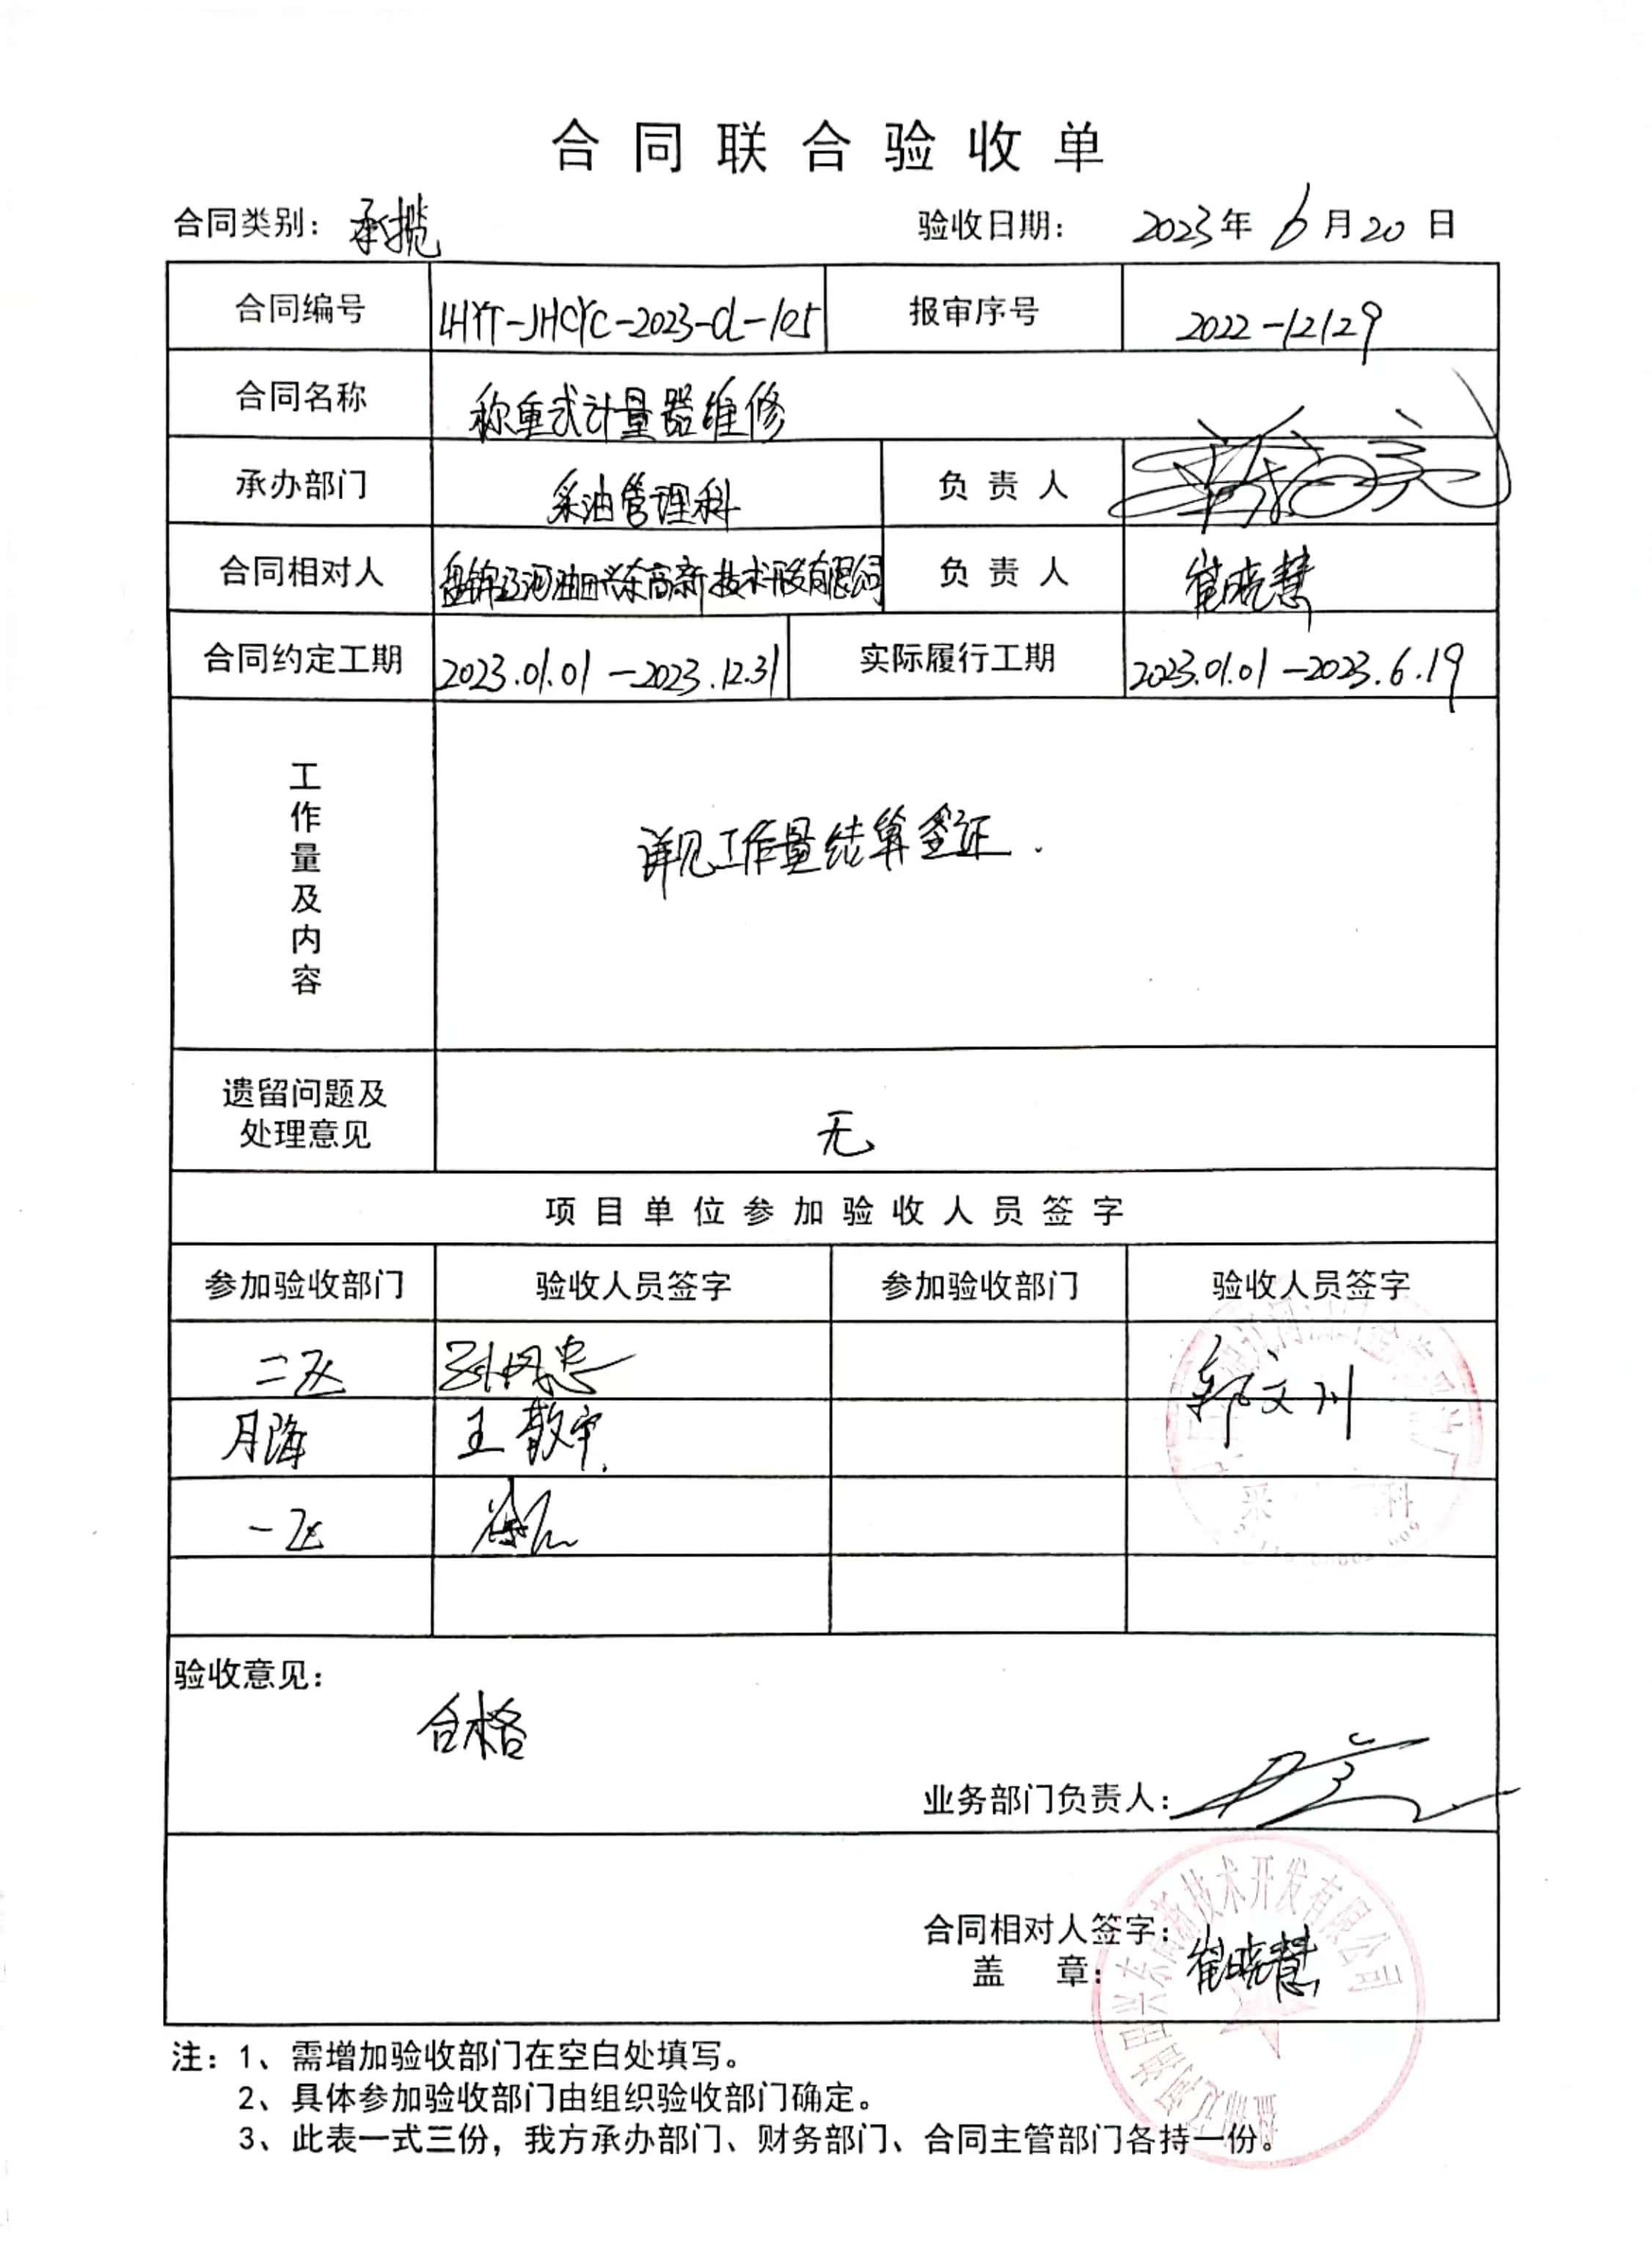 合同联合验收单
合同类别：承揽 验收日期：2023年6月20日
合同编号 LHYT-JHCYC-2023-CL-105 报审序号 2022-12129
合同名称 称重式计量器维修
承办部门 采油管理科 负责人
合同相对人 盘锦辽河油田兴东高新技术开发有限公司 负责人 崔晓慧
合同约定工期 2023.01.01-2023.12.31 实际履行工期 2023.01.01-2023.6.19
工作量及内容
详见工作量结算签证.
遗留问题及
处理意见
无
项目单位参加验收人员签字
参加验收部门 验收人员签字 参加验收部门 验收人员签字
二区 郭文川
月海 王
一区
验收意见：
合格
业务部门负责人：
合同相对人签字：
盖 章： 崔晓慧
盘锦辽河油田兴东高新技术开发有限公司
注：1、需增加验收部门在空白处填写。
2、具体参加验收部门由组织验收部门确定。
3、此表一式三份，我方承办部门、财务部门、合同主管部门各持一份。